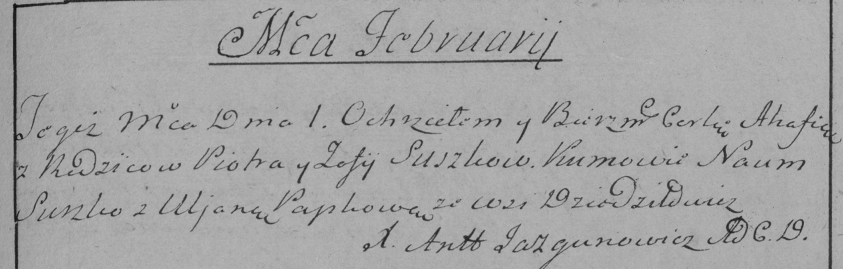 Mca Februarij
Tegiż Mca Dnia 1. Ochrzciłem y Bierzm Corkę Ahafię
z Rodzicow Piotra y Zofij Suszkow. Kumowie Naum
Suszko z Uljaną Papkową ze wsi Dziedziłowicz
X. Antt Jazgunowicz AdC.D.